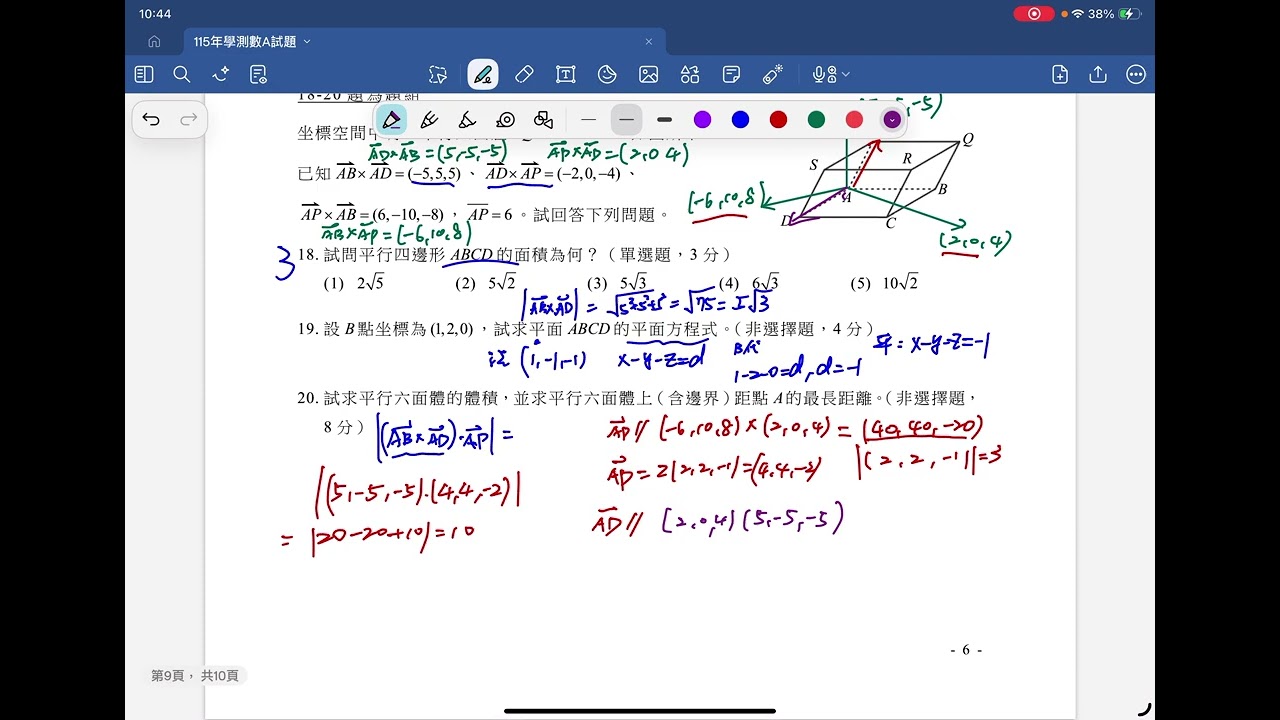 10:44
38%
115年學測數A試題
18-20 題為題組
坐標空間中
-5)
AD×AB=(5,-5,-5) AP×AD=(2,0 4)
已知 AB×AD=(−5,5,5)、AD×AP=(−2,0,−4)、
AP×AB=(6,−10,−8),AP=6。試回答下列問題。
AB×AP=(-6,10,8)
S R Q
D A B C
(-6,10,8)
(2,0,4)
3
18. 試問平行四邊形 ABCD 的面積為何?(單選題,3 分)
(1) 2√5 (2) 5√2 (3) 5√3 (4) 6√3 (5) 10√2
|AB×AD| = √5²+5²+5² = √75 = 5√3
19. 設 B 點坐標為 (1,2,0),試求平面 ABCD 的平面方程式。(非選擇題,4 分)
(1,-1,-1) x-y-z=d B代 平: x-y-z=-1
1-2-0=d, d=-1
20. 試求平行六面體的體積,並求平行六面體上(含邊界)距點 A 的最長距離。(非選擇題,
8 分)
|(AB×AD)·AP| =
AP // (-6,10,8)×(2,0,4) = (40,40,-20)
|(2,2,-1)|=3
AP = 2(2,2,-1)=(4,4,-2)
|(5,-5,-5)·(4,4,-2)|
AD // (2,0,4)(5,-5,-5)
= |20-20+10|=10
- 6 -
第9頁, 共10頁